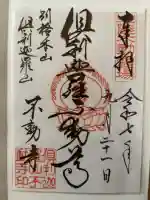 奉拝
令和七年
九月二十一日
倶利迦羅不動尊
別格本山
倶利迦羅山
不動寺